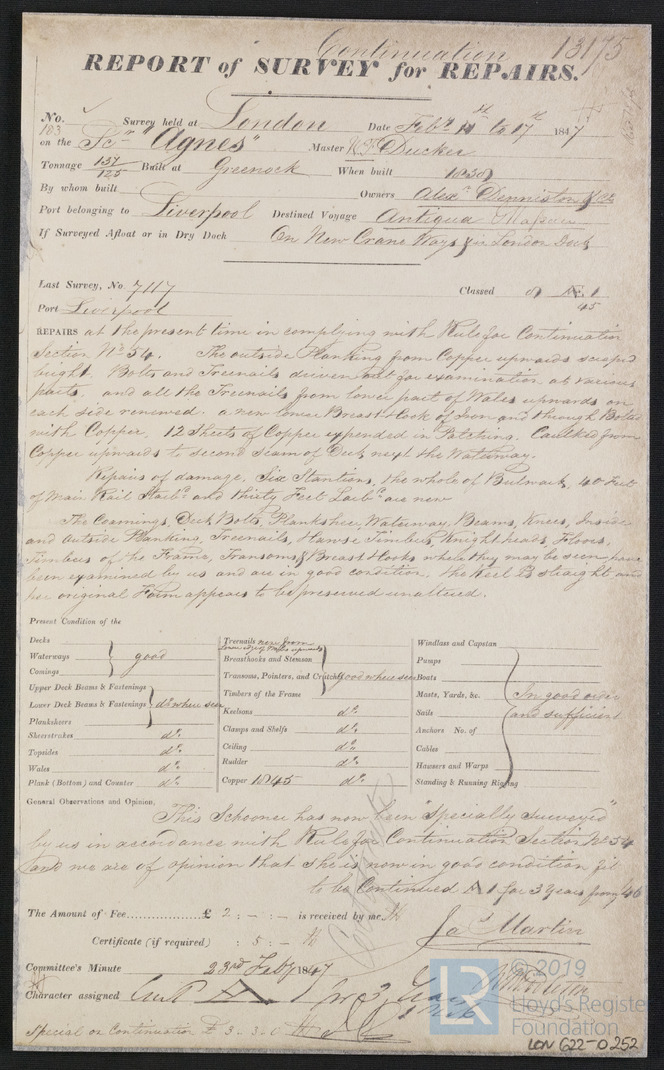 Continuation 13175
REPORT of SURVEY for REPAIRS.
No. 183 Survey held at London Date Feby 11st to 17th 1847
on the Scr "Agnes" Master Ducker
Tonnage 137/125 Built at Greenock When built 1838
By whom built Owners Alexr Denniston & Co
Port belonging to Liverpool Destined Voyage Antigua
If Surveyed Afloat or in Dry Dock On New Crane Ways & in London Dock
Last Survey, No. 7117 Classed 8 Æ 1
Port Liverpool 45
REPAIRS at the present time in complying with Rule for Continuation
Section No 54. The outside Planking from Copper upwards scraped
bright. Bolts and Treenails driven out for examination at various
parts, and all the Treenails from lower part of Wales upwards on
each side renewed. a new lower Breast Hook of Iron and through Bolted
with Copper. 12 Sheets of Copper expended in Patching. Caulked from
Copper upwards to second seam of Deck next the Waterway.
Repairs of damage. Six Stantions, the whole of Bulwark, 40 Feet
of Main Rail Starbd and thirty Feet Larbd are new
The Coamings, Deck Bolts, Plankshee, Waterway, Beams, Knees, Inside
and outside Planking, Treenails, Hawse Timbers, Knightheads, Floors,
Timbers of the Frame, Transoms, & Breast Hooks where they may be seen, have
been examined by us and are in good condition. the Keel is straight and
her original Form appears to be preserved unaltered.
Present Condition of the
Decks
Waterways good
Comings
Upper Deck Beams & Fastenings
Lower Deck Beams & Fastenings do where seen
Planksheers
Sheerstrakes do
Topsides do
Wales do
Plank (Bottom) and Counter do
Treenails new from lower edge of Wales upwards
Breasthooks and Stemson
Transoms, Pointers, and Crutches good where seen
Timbers of the Frame
Keelsons do
Clamps and Shelfs do
Ceiling do
Rudder do
Copper 1845 do
Windlass and Capstan
Pumps
Boats
Masts, Yards, &c. In good order
Sails and sufficient
Anchors No. of
Cables
Hawsers and Warps
Standing & Running Rigging
General Observations and Opinion.
This Schooner has now been "Specially surveyed"
by us in accordance with Rule for Continuation Section No 54
and we are of opinion that she is now in good condition fit
to be Continued A 1 for 3 Years from 46
The Amount of Fee £ 2 : - : - is received by me
Jas Martin
Certificate (if required) : 5 : -
Committee's Minute 23rd Feby 1847
Character assigned A 1 for 3 Years
Special or Continuation £ 3.3.0
© 2019
LR
Lloyd's Register
Foundation
LON 622-0252